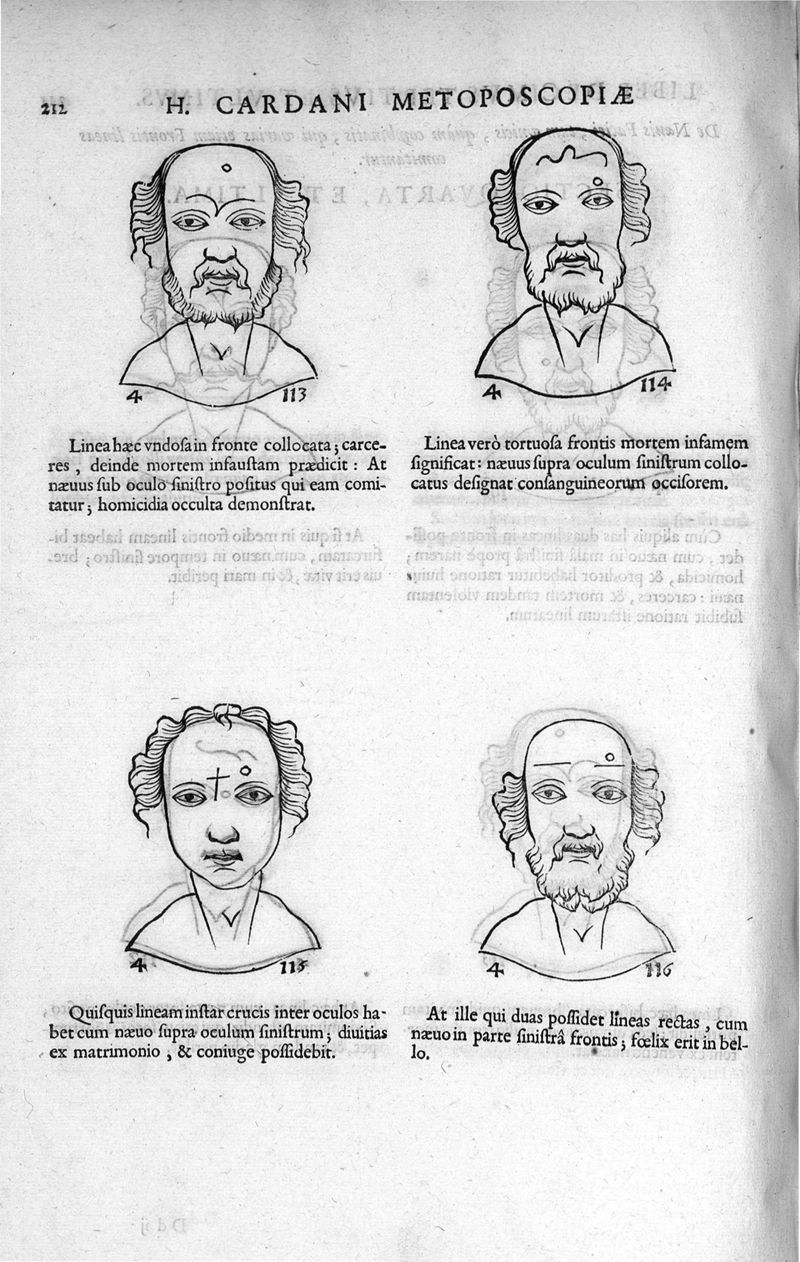 212 H. CARDANI METOPOSCOPIÆ
4 113
Linea hæc vndoſa in fronte collocata; carce-
res, deinde mortem infauſtam prædicit: At
næuus ſub oculo ſiniſtro poſitus qui eam comi-
tatur; homicidia occulta demonſtrat.
4 114
Linea verò tortuoſa frontis mortem infamem
ſignificat: næuus ſupra oculum ſiniſtrum collo-
catus deſignat conſanguineorum occiſorem.
4 115
Quiſquis lineam inſtar crucis inter oculos ha-
bet cum næuo ſupra oculum ſiniſtrum; diuitias
ex matrimonio, & coniuge poſſidebit.
4 116
At ille qui duas poſſidet lineas rectas, cum
næuo in parte ſiniſtrâ frontis; fœlix erit in bel-
lo.